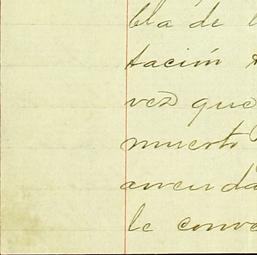 bla de l
tación
vez que
muerto
arrenda
le conv